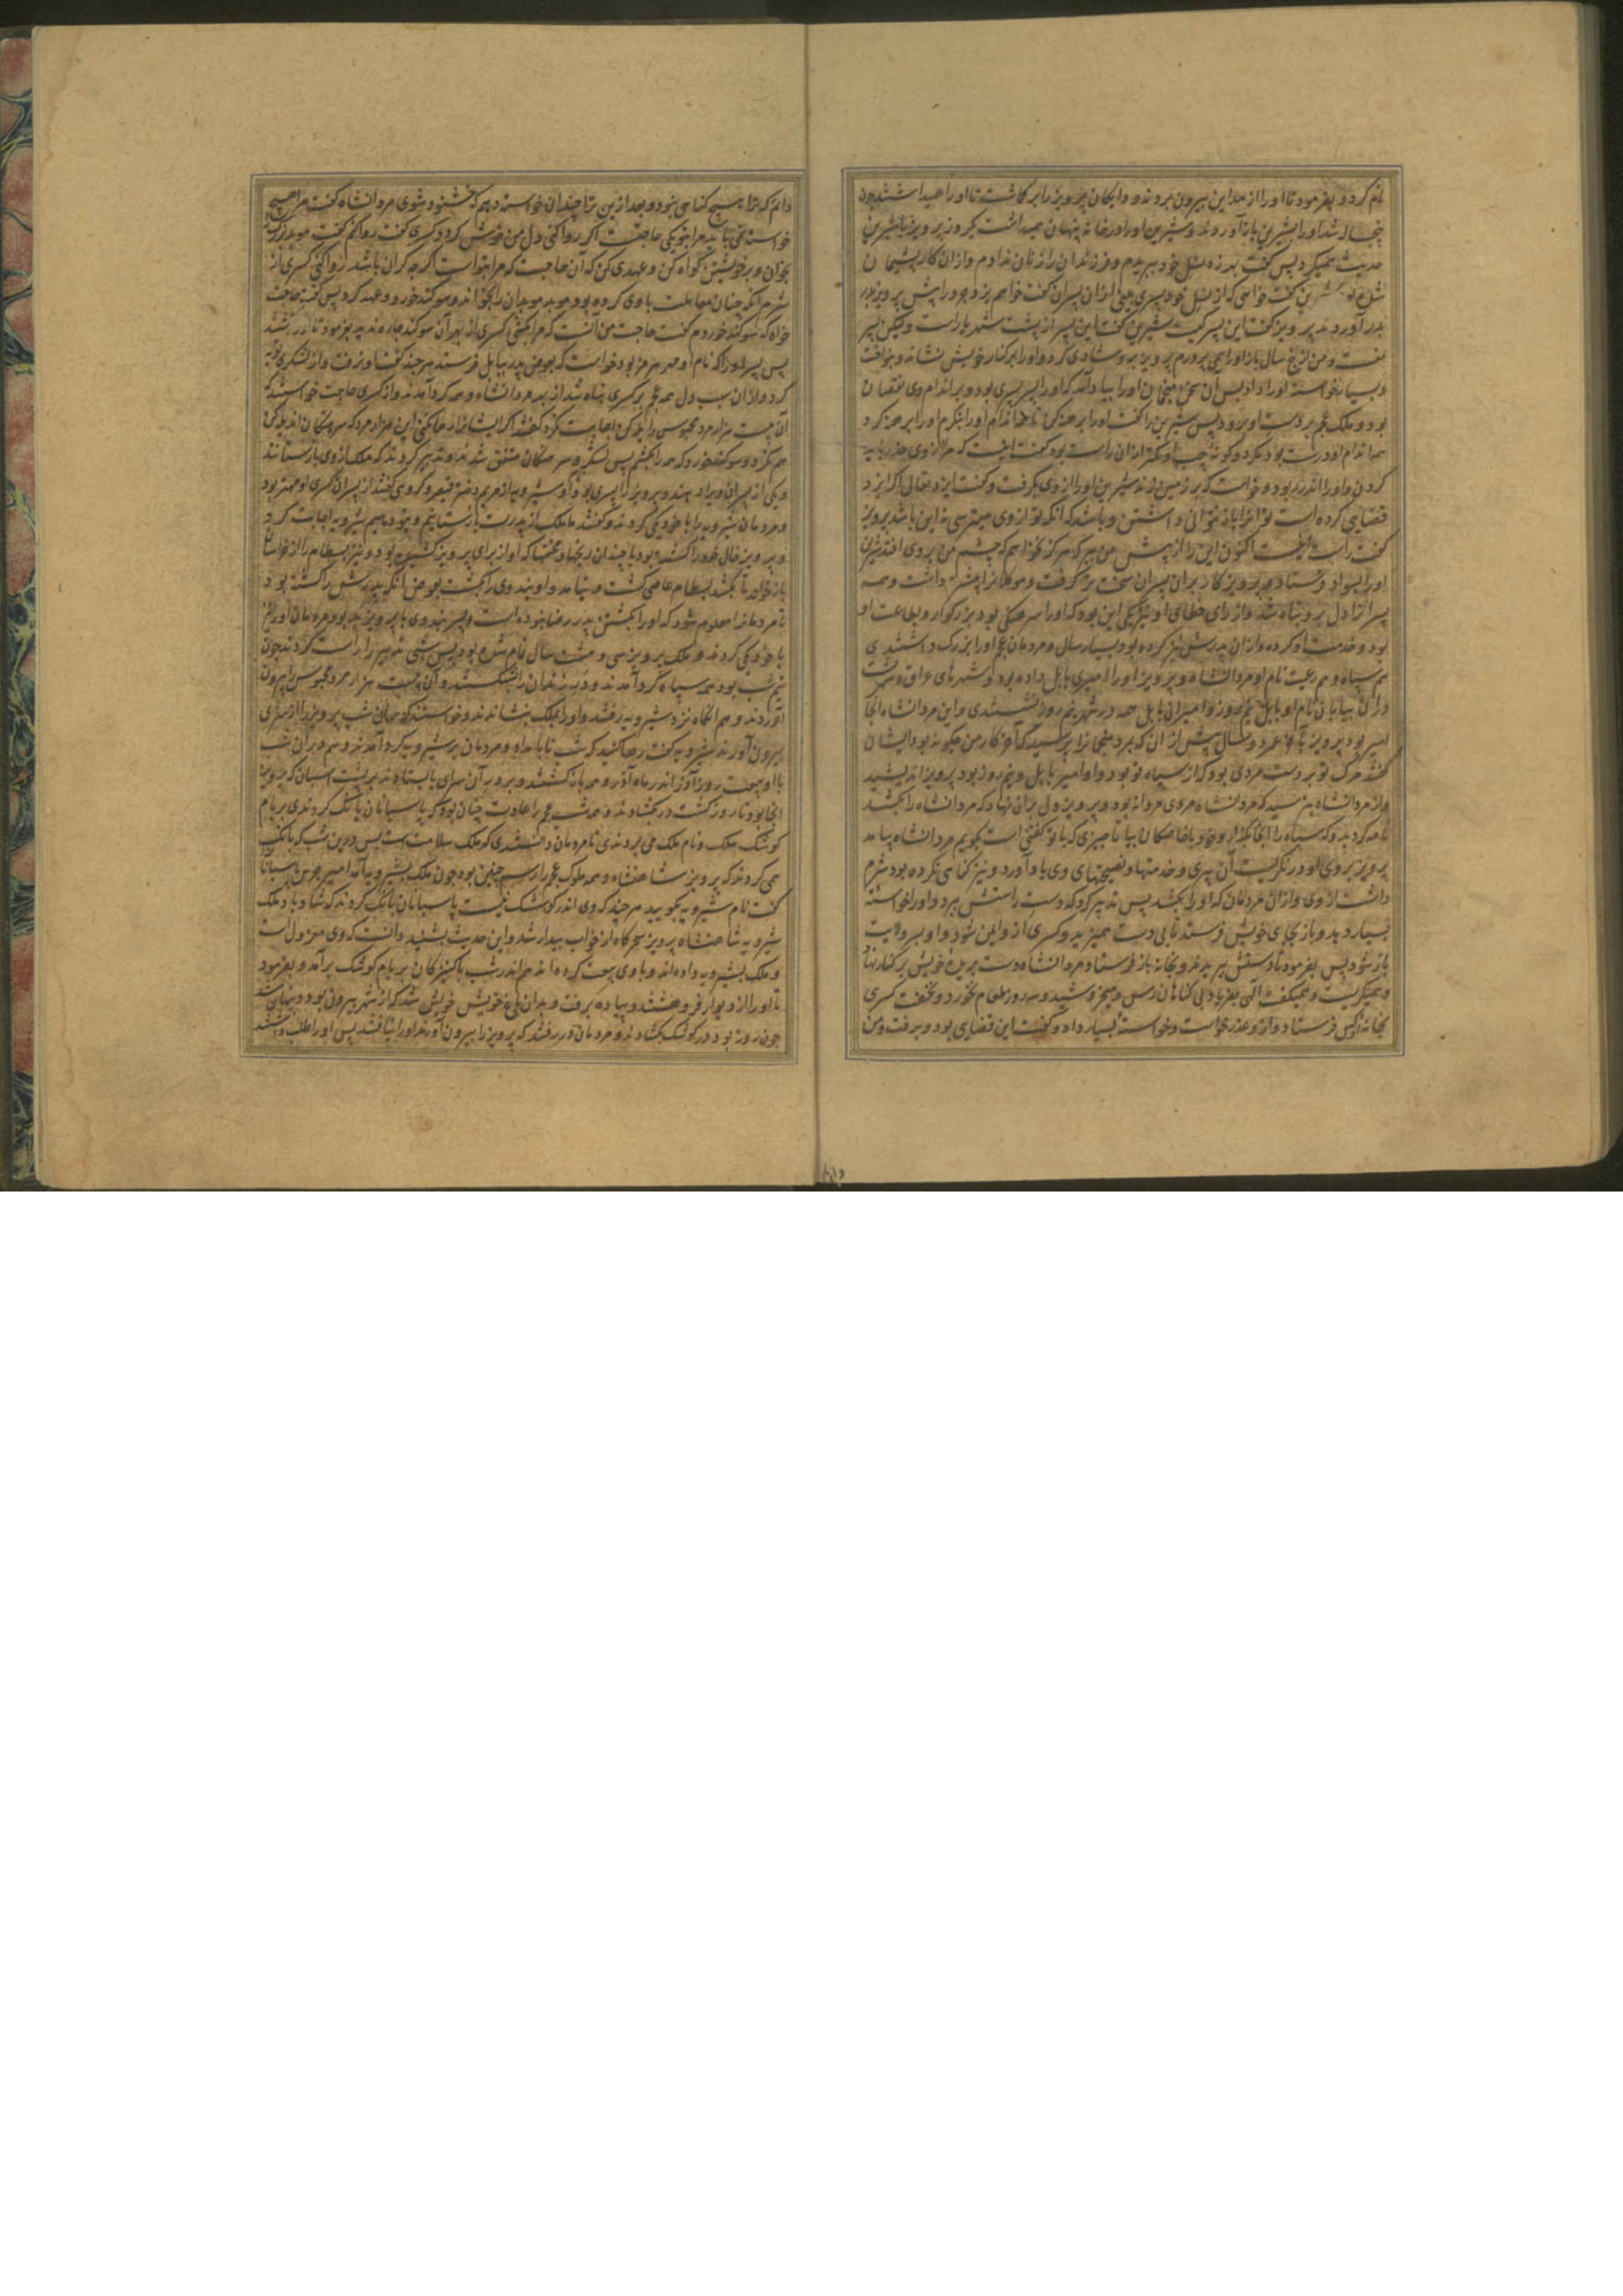 نام کرد و بفرمود تا او را از مداین بیرون بردند و دایکان پرویز را بر کاشت تا او را همیداشتند چون
پنجساله شد او را بشیرین باز آوردند و شیرین او را در خانه پنهان همیداشت یکروز پرویز با شیرین
حدیث همیکرد پس گفت بهرزه نسل خود ببریدم و فرزندان را زنان ندادم و از ان کار پشیمان
شده‌ام شیرین گفت خواهی که از نسل خود پسری بینی از ان پسران گفت خواهم یزدجرد را پیش پرویز
آوردند پرویز گفت این پسر کیست شیرین گفت این پسر از پشت شهریار است و پسر پسر
تست و من پنج سال باز او را همی پرورم پرویز بدو شادی کرد و او را بر کنار خویش نشاند و بنواخت
و بسیار خواسته او را داد پس ان سخن منجمان او را بیاد آمد که او را پسر پسری بود و بر اندام وی نقصان
بود و ملک عجم بر دست او برود پس شیرین را گفت او را برهنه کن تا همه اندام او را بنگرم او را برهنه کرد
همه اندام او درست بود مکر دو گونه چپ او کمتر از ان راست بود گفت اینست که مرا از وی حذر باید
کردن و او را اندر ربود و خواست که بر زمین زند شیرین او را از وی بگرفت و گفت ایزد تعالی اگر ایزد
قضایی کرده است تو آنرا باز نتوانی داشتن و باشد که انکه تو از وی میترسی نه این باشد پرویز
گفت راست اینست اکنون این را از پیش من ببر که هرگز نخواهم که چشم من بر وی افتد شیرین
او را بسواد فرستاد و پرویز کار بر ان پسران سخت تر گرفت و موکلان را پیش داشت و همه
پسرانرا دل بر و تباه شد و از رای خطای او نیز یکی این بود که او را سرهنگی بود بزرگوار و بطاعت او
بود و خدمت او کرده و از ان پدرش نیز کرده بود بسیار سال و مردمان عجم او را بزرگ داشتندی
هم سپاه و هم رعیت نام او مردانشاه و پرویز او را امیری بابل داده بود و شهرهای عراق و
دران بیابان نام او بابل نیم روز و امیران بابل همه در شهر نیم روز نشستندی و این مردانشاه انجا
امیر بود پرویز باخر عمر دو سال پیش از ان که بمرد منجمانرا پرسید که آخر کار من چکونه بود ایشان
گفتند مرگ تو بر دست مردی بود که از سپاه تو بود و او امیر بابل و نیم روز بود پرویز اندیشید
و از مردانشاه بترسید که مردانشاه مردی مردانه بود و پرویز دل بران نهاد که مردانشاه را بکشد
نامه کرد بدو که سپاه را انجا بگذار و خود با خاصکان بیا تا چیزی که با تو گفتنی است بگویم مردانشاه بیامد
پرویز بروی او در نگریست آن پیری و خدمتها و نصیحتهای وی یاد آورد و نیز گناهی نکرده بود شرم
داشت از وی و از ان مردمان که او را بکشد پس تدبیر کرد که دست راستش ببرد و او را خواسته
بسیار دهد و باز بجای خویش فرستد تا بی دست همیزید و کسری از و ایمن شود و او بسر ولایت
باز شود پس بفرمود تا دستش ببریدند و بخانه باز فرستاد مردانشاه دست بریده خویش بر کنار نهاد
و همیگریست و همیگفت الهی بفریاد بی گناهان رس و میخروشید و سه روز طعام نخورد و نخفت کسری
بخانه او کس فرستاد و از و عذر خواست و خواسته بسیار داد و گفت این قضای بود و برفت و من
دانم که ترا هیچ گناهی نبود و بعد ازین ترا چندان خواسته دهم که خشنود شوی مردانشاه گفت مرا هیچ
خواسته نمی باید مرا بتو یکی حاجتست اگر روا کنی دل من خوش گردد کسری گفت روا کنم گفت موبدانرا
بخوان و بر خویشتن گواه کن و عهدی کن که آن حاجت که مرا بتو است اگر چه گران باشد روا کنی کسری از
شرم آنکه چنان معاملت با وی کرده بود موبد موبدان را بخواند و سوگند خورد و عهد کرد پس گفت حاجت
خواه که سوگند خوردم گفت حاجت من آنست که مرا بکشی کسری از بهر آن سوگند چاره ندید بفرمود تا او را بکشند
پس پسر او را که نام او مهر هرمز بود خواست که بعوض پدر ببابل فرستد هر چند گفت او نرفت و از لشکری توبه
کرد و از ان سبب دل همه عجم بر کسری تباه شد از بهر مردانشاه و همه گرد آمدند و از کسری حاجت خواستند که
آن بیست هزار مرد محبوس را یله کن اجابت نکرد گفتند اگر ایشانرا رها نکنی این هزار مرد که سرهنگان اند یله کن
هم نکرد و سوگند خورد که همه را بکشم پس لشکر و سرهنگان متفق شدند و تدبیر کردند که ملک از وی باز ستانند
و یکی از پسران ویرا دهند و پرویز را پسری بود نام او شیرویه از مریم دختر قیصر و گروهی گفتند از پسران کسری او مهتر بود
و مردمان شیرویه را با خود یکی کردند و گفتند ما ملک از پدرت باز ستانیم و بتو دهیم شیرویه اجابت کرد
و پرویز خال خود را کشته بود با چندان رنجها و محنتها که او از برای پرویز کشیده بود و نیز بسطام را از خراسان
باز خواند تا بکشد بسطام عاصی گشت و نیامد و او بندوی را بکشت بعوض آنکه پدرش را کشته بود
تا مردمانرا معلوم شود که او را بکشتن پدر رضا نبوده است و پسر بندوی با پرویز بد بود مردمان او را نیز
با خود یکی کردند و ملک پرویز سی و هشت سال تمام شده بود پس شبی تدبیر راست کردند چون
نیم شب بود همه سپاه گرد آمدند و در زندان را بشکستند و آن بیست هزار مرد محبوس را بیرون
آوردند و هم انگاه نزد شیرویه رفتند و او را بملک بنشاندند و خواستند که همان شب پرویز را از سرای
بیرون آورند شیرویه گفت رها کنید که شب تا بامداد و مردمان بر شیرویه گرد آمدند و هم در ان شب
با او بیعت روز آذر اندر ماه آذر و همه باز گشتند و بر در آن سرای بایستادند بر پشت اسبان که پرویز
انجا بود تا روز گشت در بگشادند و همه شب عجم را عادت چنان بود که پاسبانان بانگ کردندی بر بام
کوشک ملک و نام ملک می بردندی تا مردمان دانستندی که ملک بسلامت است پس درین شب که بانگ
همی کردند که پرویز شاهنشاه و همه ملوک عجم را رسم چنین بود چون ملک بشیرویه آمد امیر حرس پاسبانانرا
گفت نام شیرویه بگویید هر چند که وی اندر کوشک نیست پاسبانان بانگ کردند که شاد باد ملک
شیرویه شاهنشاه پرویز سحرگاه از خواب بیدار شد و این حدیث بشنید دانست که وی معزول است
و ملک بشیرویه داده‌اند و با وی بیعت کرده‌اند هم اندر شب با کنیزکان بر بام کوشک برآمد و بفرمود
تا او را از دیوار فرو هشتند و پیاده برفت و بدان باغ خویش شد که از شهر بیرون بود و پنهان شد
چون روز بود در کوشک بگشادند و مردمان در رفتند که پرویز را بیرون آورند او را نیافتند پس او را طلب داشتند